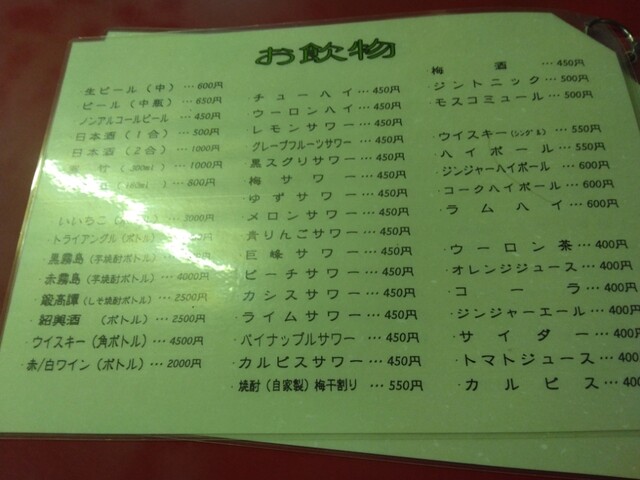 お飲物
生ビール（中）…600円
ビール（中瓶）…650円
ノンアルコールビール …450円
日本酒（1合）…500円
日本酒（2合）…1000円
竹（300ml）…1000円
（180ml）…800円
いいちこ 2000円
トライアングル（ボトル）
黒霧島（芋焼酎ボトル）
赤霧島（芋焼酎ボトル）…4000円
鍛高譚（しそ焼酎ボトル）…2500円
紹興酒 （ボトル）…2500円
ウイスキー（角ボトル）…4500円
赤/白ワイン（ボトル）…2000円
チューハイ…450円
ウーロンハイ…450円
レモンサワー…450円
グレープフルーツサワー …450円
黒スグリサワー…450円
梅サワー…450円
ゆずサワー…450円
メロンサワー…450円
青りんごサワー…450円
巨峰サワー…450円
ピーチサワー…450円
カシスサワー…450円
ライムサワー…450円
パイナップルサワー…450円
カルピスサワー…450円
焼酎（自家製）梅干割り …550円
梅酒…450円
ジントニック…500円
モスコミュール…500円
ウイスキー（シングル）…550円
ハイボール…550円
ジンジャーハイボール…600円
コークハイボール…600円
ラムハイ…600円
ウーロン茶…400円
オレンジジュース…400円
コーラ…400円
ジンジャーエール…400円
サイダー…400
トマトジュース…400
カルピス…400